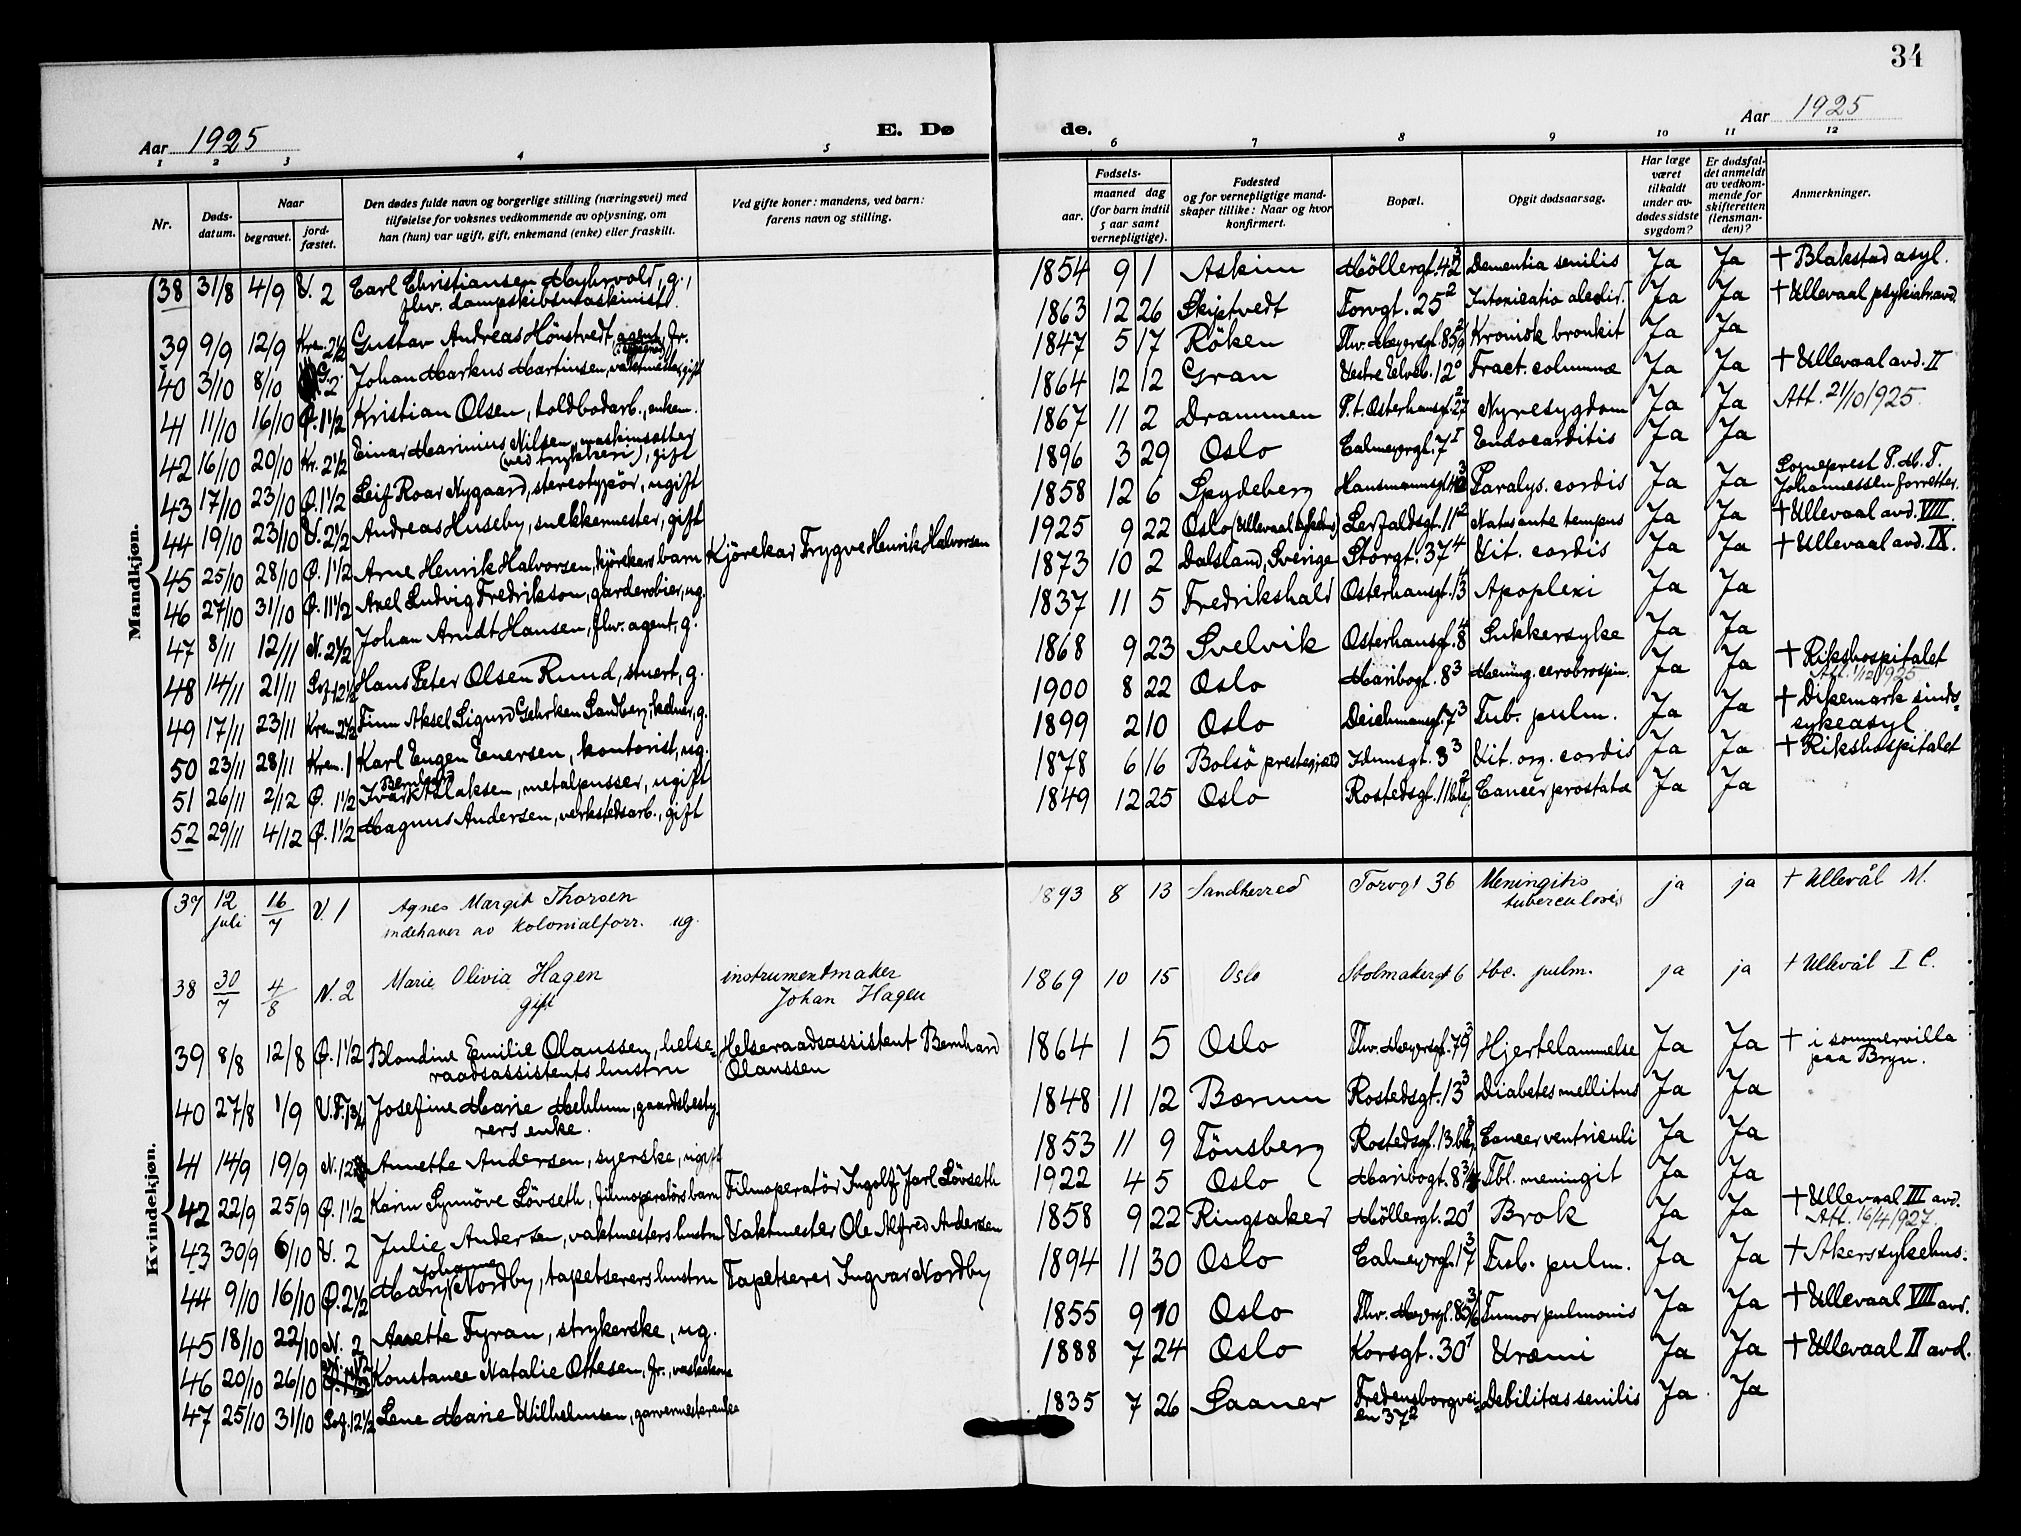 34
Aar 1925
E. Dø
de.
Aar 1925
1 2 3 4 5 6 7 8 9 10 11 12
Nr.
Døds-
datum.
Naar
begravet.
jord-
fæstet.
Den dødes fulde navn og borgerlige stilling (næringsvei) med
tilføielse for voksnes vedkommende av oplysning, om
han (hun) var ugift, gift, enkemand (enke) eller fraskilt.
Ved gifte koner: mandens, ved barn:
farens navn og stilling.
Fødsels-
aar.
maaned dag
(for barn indtil
5 aar samt
vernepligtige).
Fødested
og for vernepligtige mand-
skaper tillike: Naar og hvor
konfirmert.
Bopæl.
Opgit dødsaarsag.
Har læge
været
tilkaldt
under av-
dødes sidste
sygdom?
Er dødsfal-
det anmeldt
av vedkom-
mende for
skifteretten
(lensman-
den)?
Anmerkninger.
Mandkjøn.
38 31/8 4/9 V. 2 Carl Christiansen Myhrvold, g.,
fhv. dampskibsmaskinist. 1854 9 1 Askim Møllergt. 42³ Dementia senilis Ja Ja + Blakstad asyl.
39 9/9 12/9 Krem. 2½ Gustav Andreas Hönstvedt, fr. 1863 12 26 Skiptvedt Torvgt. 25² Ja Ja + Ullevaal psykiatr. avd.
40 3/10 8/10 2 Johan Markus Martinsen, gift 1847 5 17 Röken Thv. Meyersgt. 85 Kronisk bronkit Ja Ja
41 11/10 16/10 Ø. 1½ Kristian Olsen, toldbodarb., enkem. 1864 12 12 Gran Vestre Elveb. 12⁰ Fract. columnæ Ja Ja + Ullevaal avd. II
42 16/10 20/10 Kr. 2½ Einar Marinius Nilsen, maskinsætter
(ved trykkeri), gift 1867 11 2 Drammen P.t. Osterhausgt. 27² Nyresygdom Ja Ja Att. 21/10 1925.
43 17/10 23/10 Ø. 1½ Leif Roar Nygaard, stereotypør, ugift 1896 3 29 Oslo Calmeyergt. 7 I Endocarditis Ja Ja
44 19/10 23/10 V. 2½ Andreas Huseby, snekkermester, gift 1858 12 6 Spydeberg Hausmannsgt. Paralys. cordis Ja Ja Sogneprest P. M. T.
Johannessen forretter.
45 25/10 28/10 Ø. 1½ Arne Henrik Halvorsen, kjörekars barn Kjörekar Trygve Henrik Halvorsen 1925 9 22 Oslo (Ullevaal sykehus) Lerfaldsgt. 11² Natus ante tempus Ja Ja + Ullevaal avd. VIII.
46 27/10 31/10 Ø. 11½ Axel Ludvig Fredrikson, garderobier, ug. 1873 10 2 Dalsland, Sverige Storgt. 37⁴ Vit. cordis Ja Ja + Ullevaal avd. IX.
47 8/11 12/11 N. 2½ Johan Arndt Hansen, fhv. agent, g. 1837 11 5 Fredrikshald Osterhausgt. 13 Apoplexi Ja Ja
48 14/11 21/11 Sof. 12½ Hans Peter Olsen Ruud, stuert, g. 1868 9 23 Svelvik Osterhausgt. 8⁴ Sukkersyke Ja Ja
49 17/11 23/11 Krem. 2½ Finn Aksel Sigurd Gehrken Sandberg, kelner, g. 1900 8 22 Oslo Maribogt. 8³ Mening. cerebrospin. Ja Ja + Rikshospitalet
Att. 1/12 1925
50 23/11 28/11 Krem. 1 Karl Eugen Enersen, kontorist, ug. 1899 2 10 Oslo Deichmansgt. 7³ Tub. pulm. Ja Ja + Dikemark sinds-
sykeasyl
51 26/11 2/12 Ø. 1½ Ivar Bernhard Aslaksen, metalpusser, ugift 1878 6 16 Bolsö prestegjeld Idunsgt. 3³ Vit. org. cordis Ja Ja + Rikshospitalet
52 29/11 4/12 Ø. 1½ Magnus Andersen, verkstedsarb., gift 1849 12 25 Oslo Rostedsgt. 11 b² Cancer prostatæ Ja Ja
Kvindekjøn.
37 12 juli 16/7 V. 1 Agnes Margit Thorsen
indehaver av kolonialforr. ug. 1893 8 13 Sandherred Torvgt 36 Meningitis
tuberculosis ja ja + Ullevål M.
38 30/7 4/8 N. 2 Marie Olivia Hagen
gift instrumentmaker
Johan Hagen 1869 10 15 Oslo Stolmakergt 6 tbc. pulm. ja ja + Ullevål I C.
39 8/8 12/8 Ø. 1½ Blondine Emilie Olaussen, helse-
raadsassistents hustru Helseraadsassistent Bernhard
Olaussen 1864 1 5 Oslo Thv. Meyersgt. 79³ Hjertelammelse Ja Ja + i sommervilla
paa Bryn.
40 27/8 1/9 V.F. 1¾ Josefine Marie Mehlum, gaardsbesty-
rers enke. 1848 11 12 Bærum Rostedsgt. 13³ Diabetes mellitus Ja Ja
41 14/9 19/9 N. 12 Annette Andersen, syerske, ugift 1853 11 9 Tönsberg Rostedsgt. 13 b Cancer ventriculi Ja Ja
42 22/9 25/9 Ø. 1½ Karin Synnöve Lövseth, filmoperatörs barn Filmoperatör Ingolf Jarl Lövseth 1922 4 5 Oslo Maribogt. 8 Tbl. meningit Ja Ja
43 30/9 6/10 V. 2 Julie Andersen, vaktmesters hustru Vaktmester Ole Alfred Andersen 1858 9 22 Ringsaker Møllergt. 20¹ Brok Ja Ja + Ullevaal III avd.
Att. 16/4 1927.
44 9/10 16/10 Ø. 2½ Mary Johanne Nordby, tapetserers hustru Tapetserer Ingvar Nordby 1894 11 30 Oslo Calmeyergt. 17³ Tub. pulm. Ja Ja + Akers sykehus.
45 18/10 22/10 N. 2 Anette Fyran, strykerske, ug. 1855 9 10 Oslo Thv. Meyergt. 85 Tumor pulmonis Ja Ja + Ullevaal VIII avd.
46 20/10 26/10 Konstance Natalie Ottesen, fr., vaskekone 1888 7 24 Oslo Korsgt. 30¹ Uræmi Ja Ja + Ullevaal II avd.
47 25/10 31/10 Sof. 12½ Lene Marie Wilhelmsen, garvermesterenke 1835 7 26 Saaner Fredensborgvei-
en 37² Debilitas senilis Ja Ja